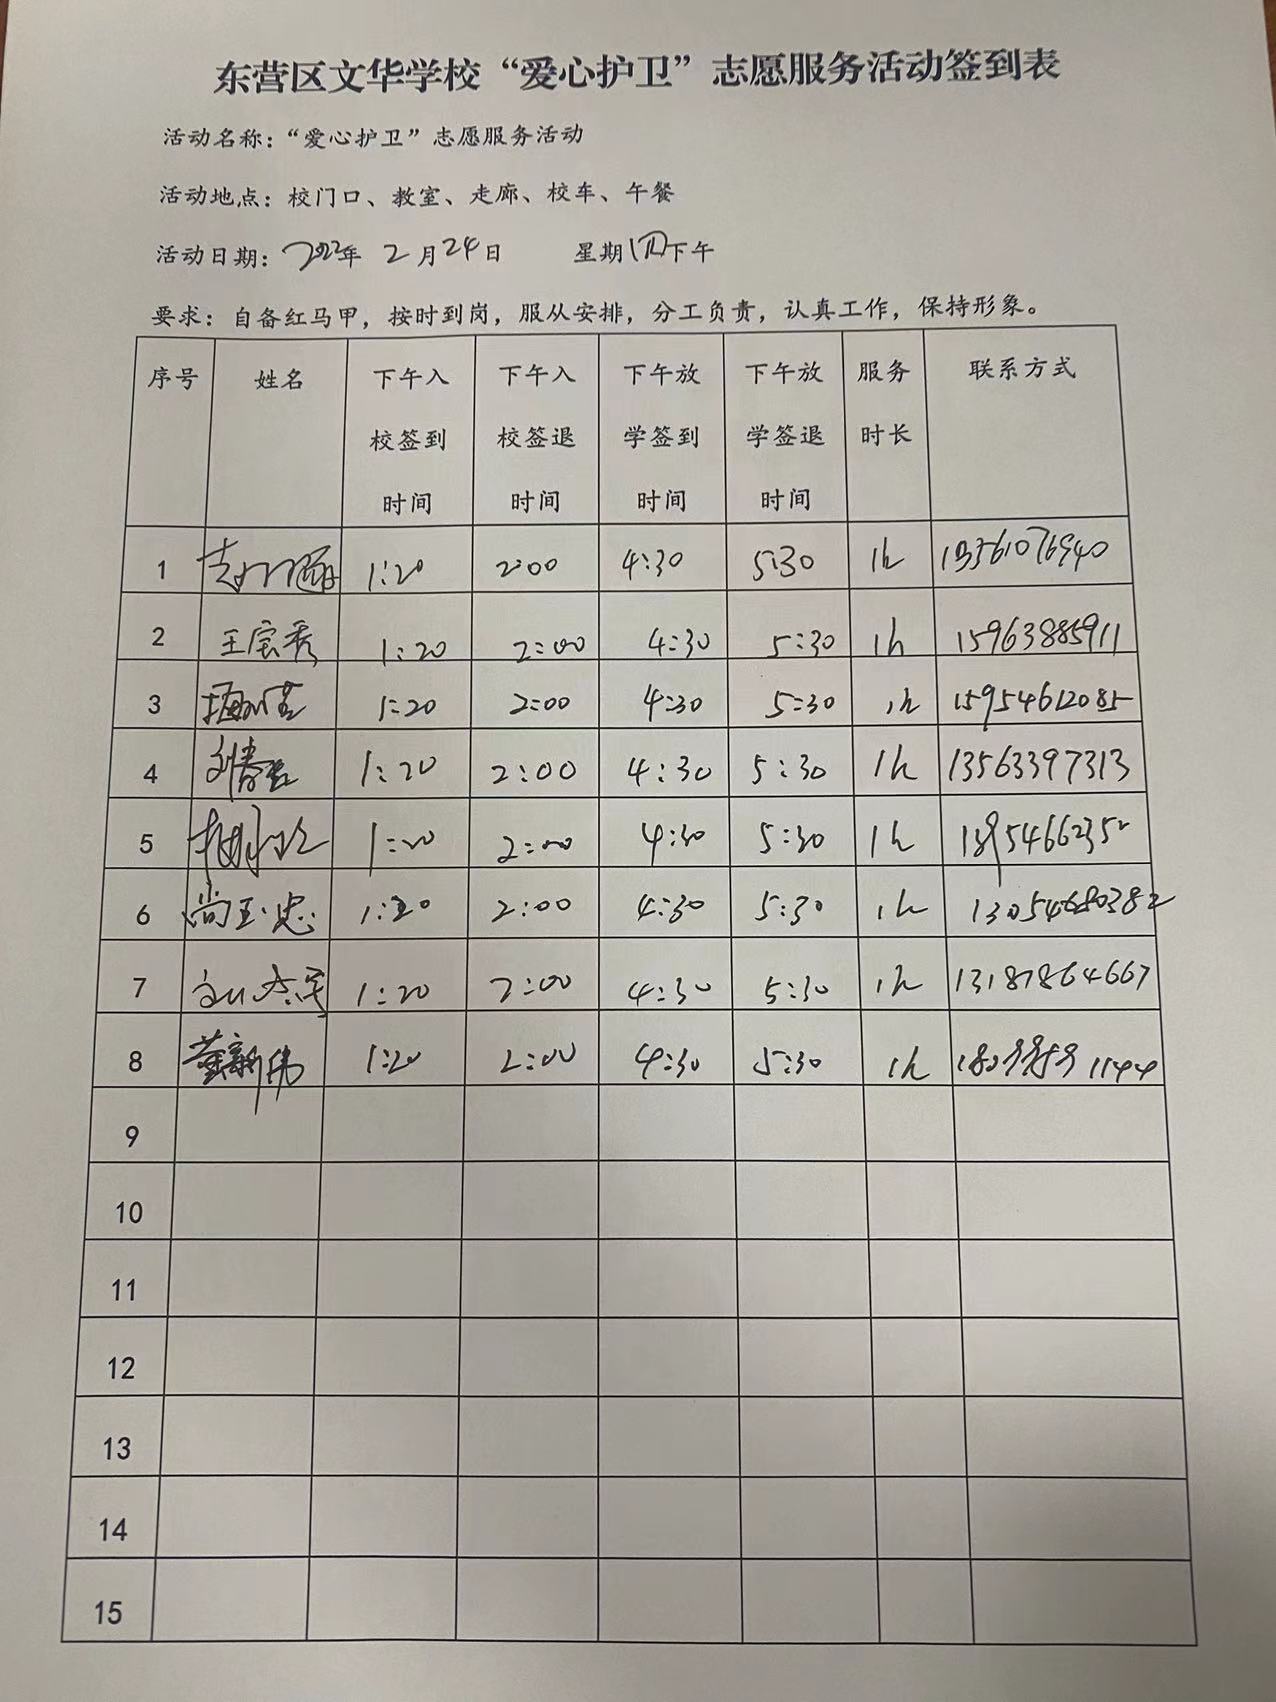 东营区文华学校“爱心护卫”志愿服务活动签到表
活动名称：“爱心护卫”志愿服务活动
活动地点：校门口、教室、走廊、校车、午餐
活动日期：2022年 2月24日 星期四下午
要求：自备红马甲，按时到岗，服从安排，分工负责，认真工作，保持形象。
序号 姓名 下午入校签到时间 下午入校签退时间 下午放学签到时间 下午放学签退时间 服务时长 联系方式
1 1:20 2:00 4:30 5:30 1h
2 王宝秀 1:20 2:00 4:30 5:30 1h 15963885911
3 1:20 2:00 4:30 5:30 1h 15954612085
4 刘春 1:20 2:00 4:30 5:30 1h 13563397313
5 1:20 2:00 4:30 5:30 1h
6 尚玉忠 1:20 2:00 4:30 5:30 1h 13054680382
7 1:20 2:00 4:30 5:30 1h 13187864667
8 董新伟 1:20 2:00 4:30 5:30 1h
9
10
11
12
13
14
15